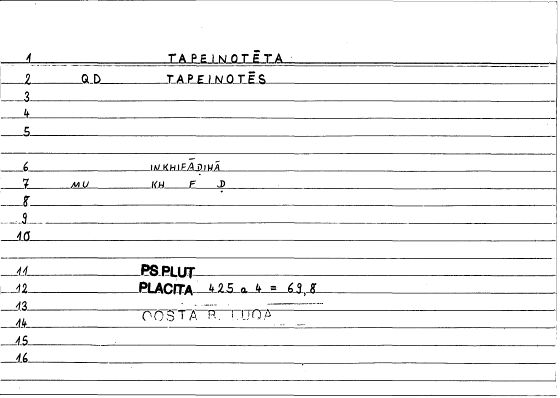 1 TAPEINOTĒTA
2 QD TAPEINOTĒS
3
4
5
6 INKHIFĀḌIHĀ
7 MU KH F Ḍ
8
9
10
11 PS.PLUT
12 PLACITA 425 a 4 = 69,8
13
14 COSTA B. LUQA
15
16